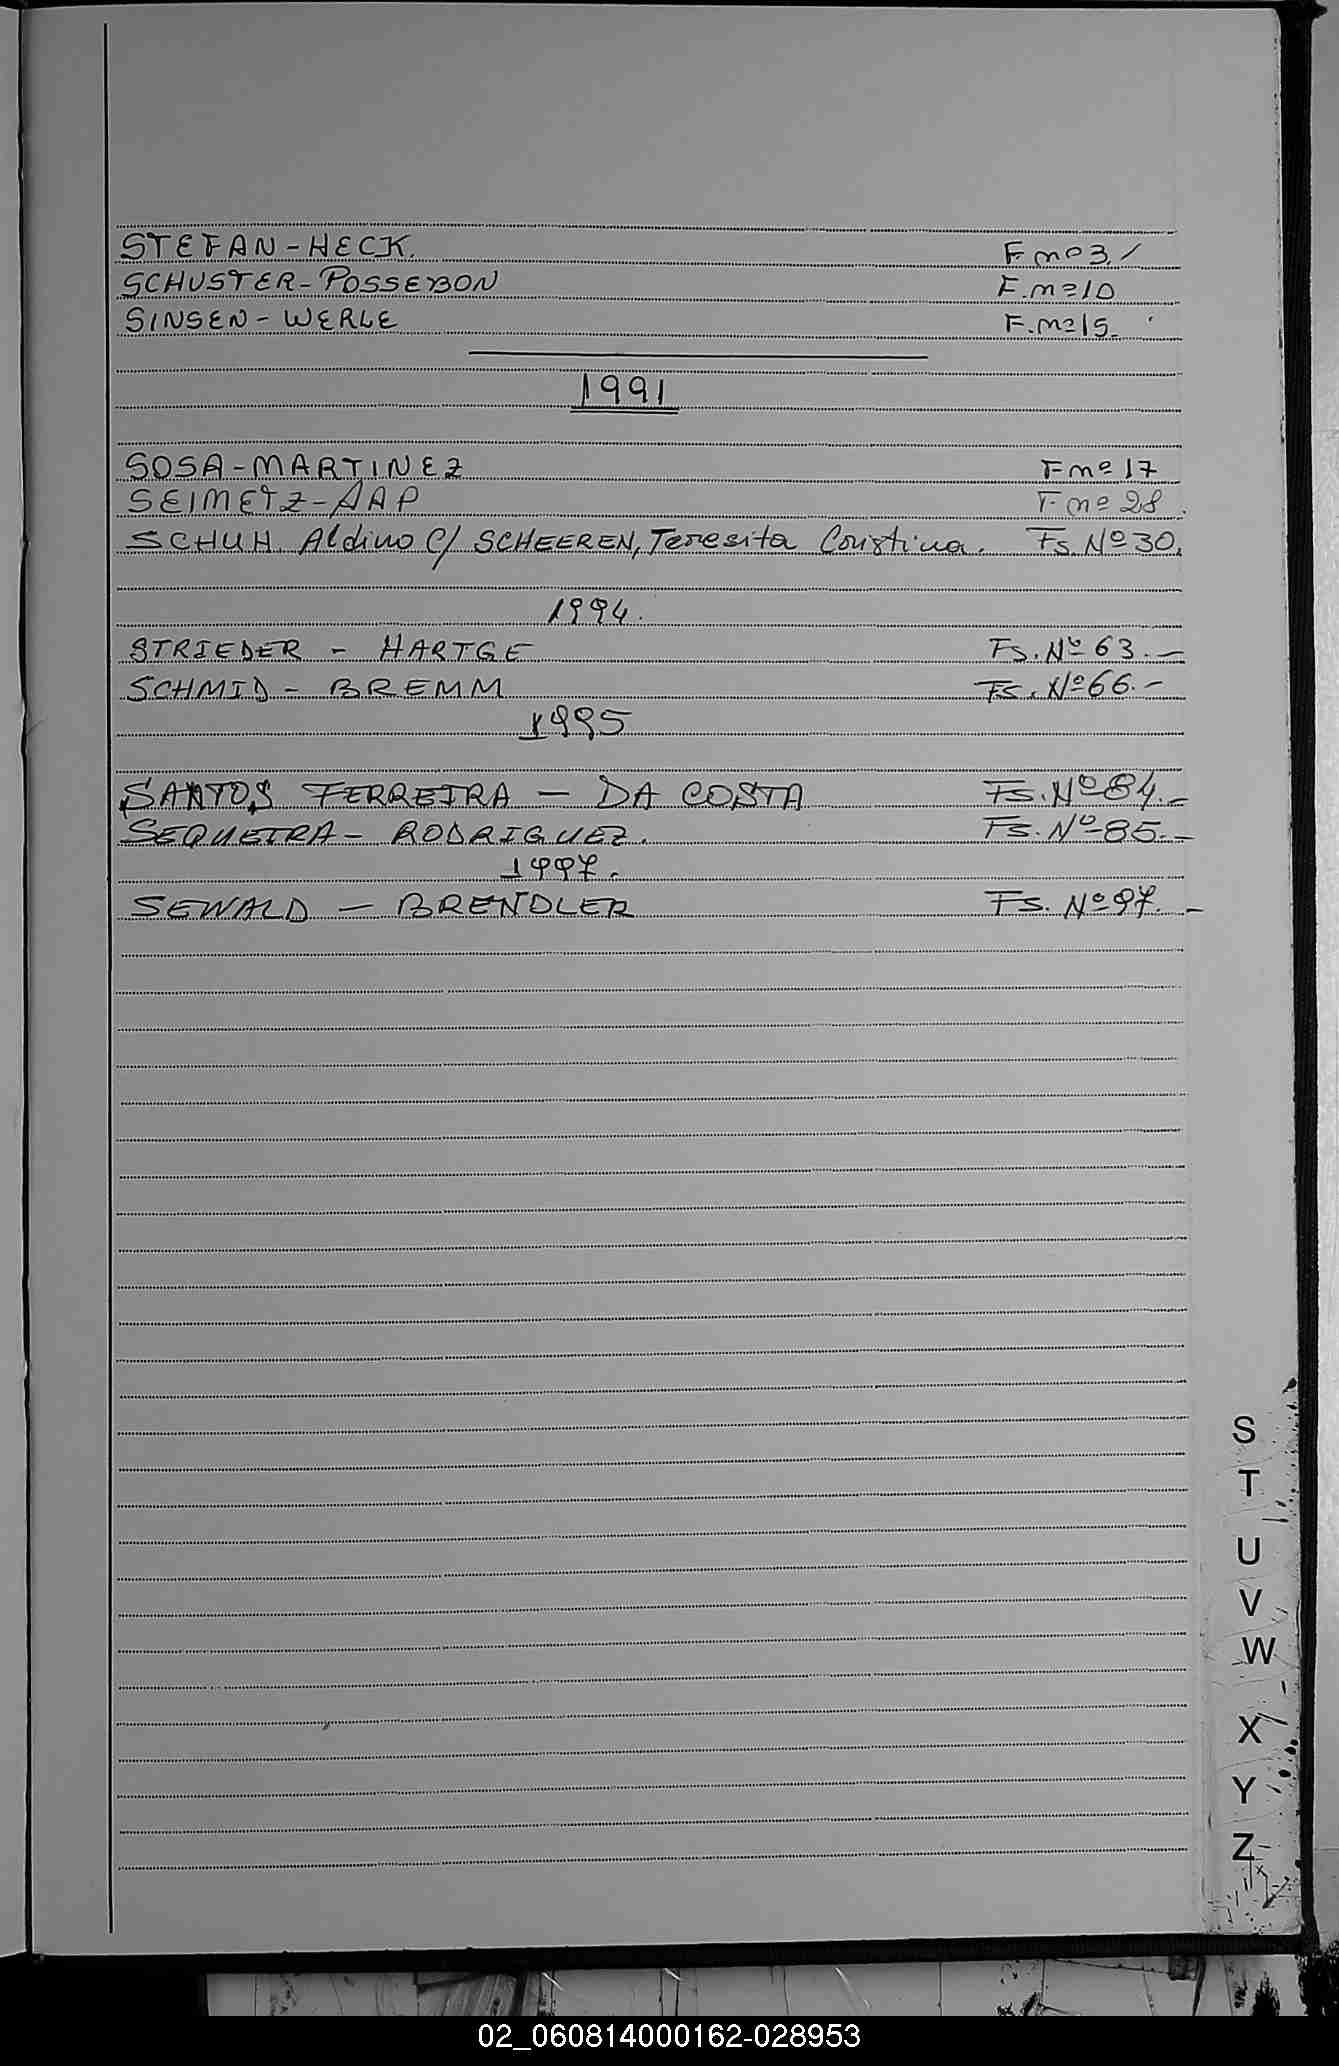 STEFAN-HECK. F nº 3.
SCHUSTER-POSSEBON F. nº 10
SINSEN-WERLE F. nº 15.
1991
SOSA-MARTINEZ F nº 17
SEIMETZ-AAP F nº 28.
SCHUH. Aldino C/ SCHEEREN, Teresita Cristina. Fs. Nº 30.
1994.
STRIEDER - HARTGE Fs. Nº 63.-
SCHMID - BREMM Fs. Nº 66.-
1995
SANTOS FERREIRA - DA COSTA Fs. Nº 84.-
SEQUEIRA - RODRIGUEZ. Fs. Nº 85.-
1997.
SEWALD - BRENDLER Fs. Nº 97.-
S
T
U
V
W
X
Y
Z
02_060814000162-028953